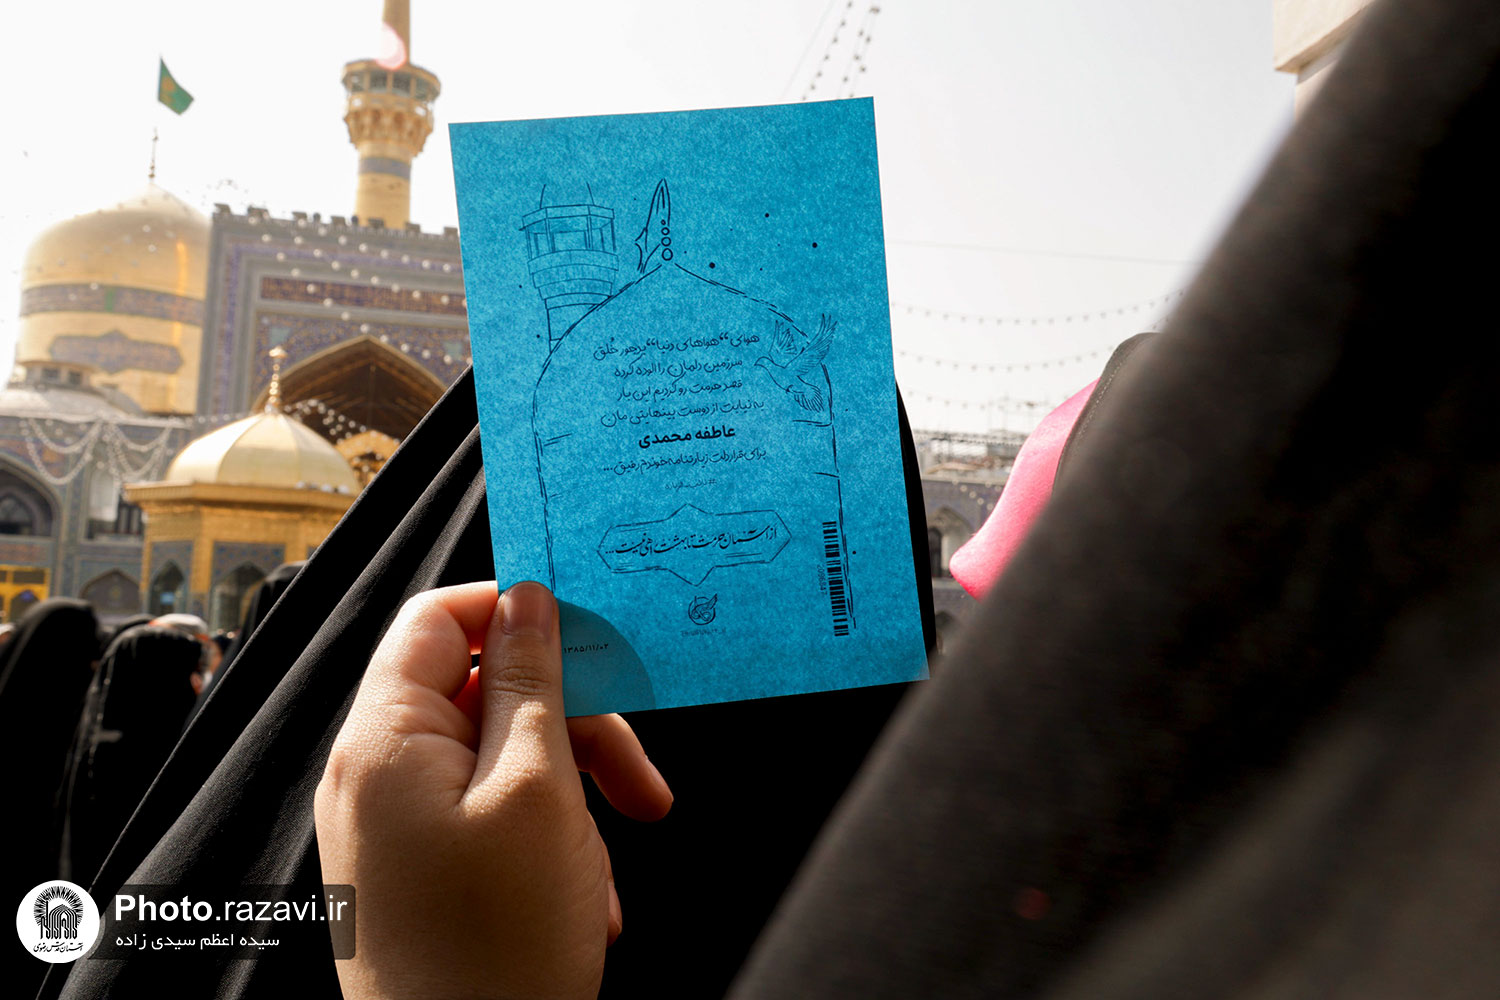 هوای “هواهای دنیا” بدجور خُلق
سرزمین دلمان را آلوده کرده
قصد حرمت رو کردیم این بار
به نیابت از دوست بینهایتی مان
عاطفه محمدی
برای قرار دلت زیارتنامه خوندم رفیق...
از آستان حرمت تا بهشت راهی نیست...
۱۳۸۵/۱۱/۰۲
Photo.razavi.ir
سیده اعظم سیدی زاده
آستان قدس رضوی